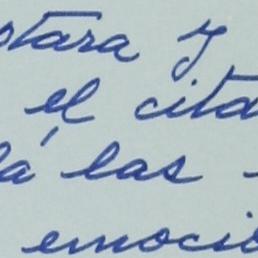 stara y
el cita
lá las
emoció